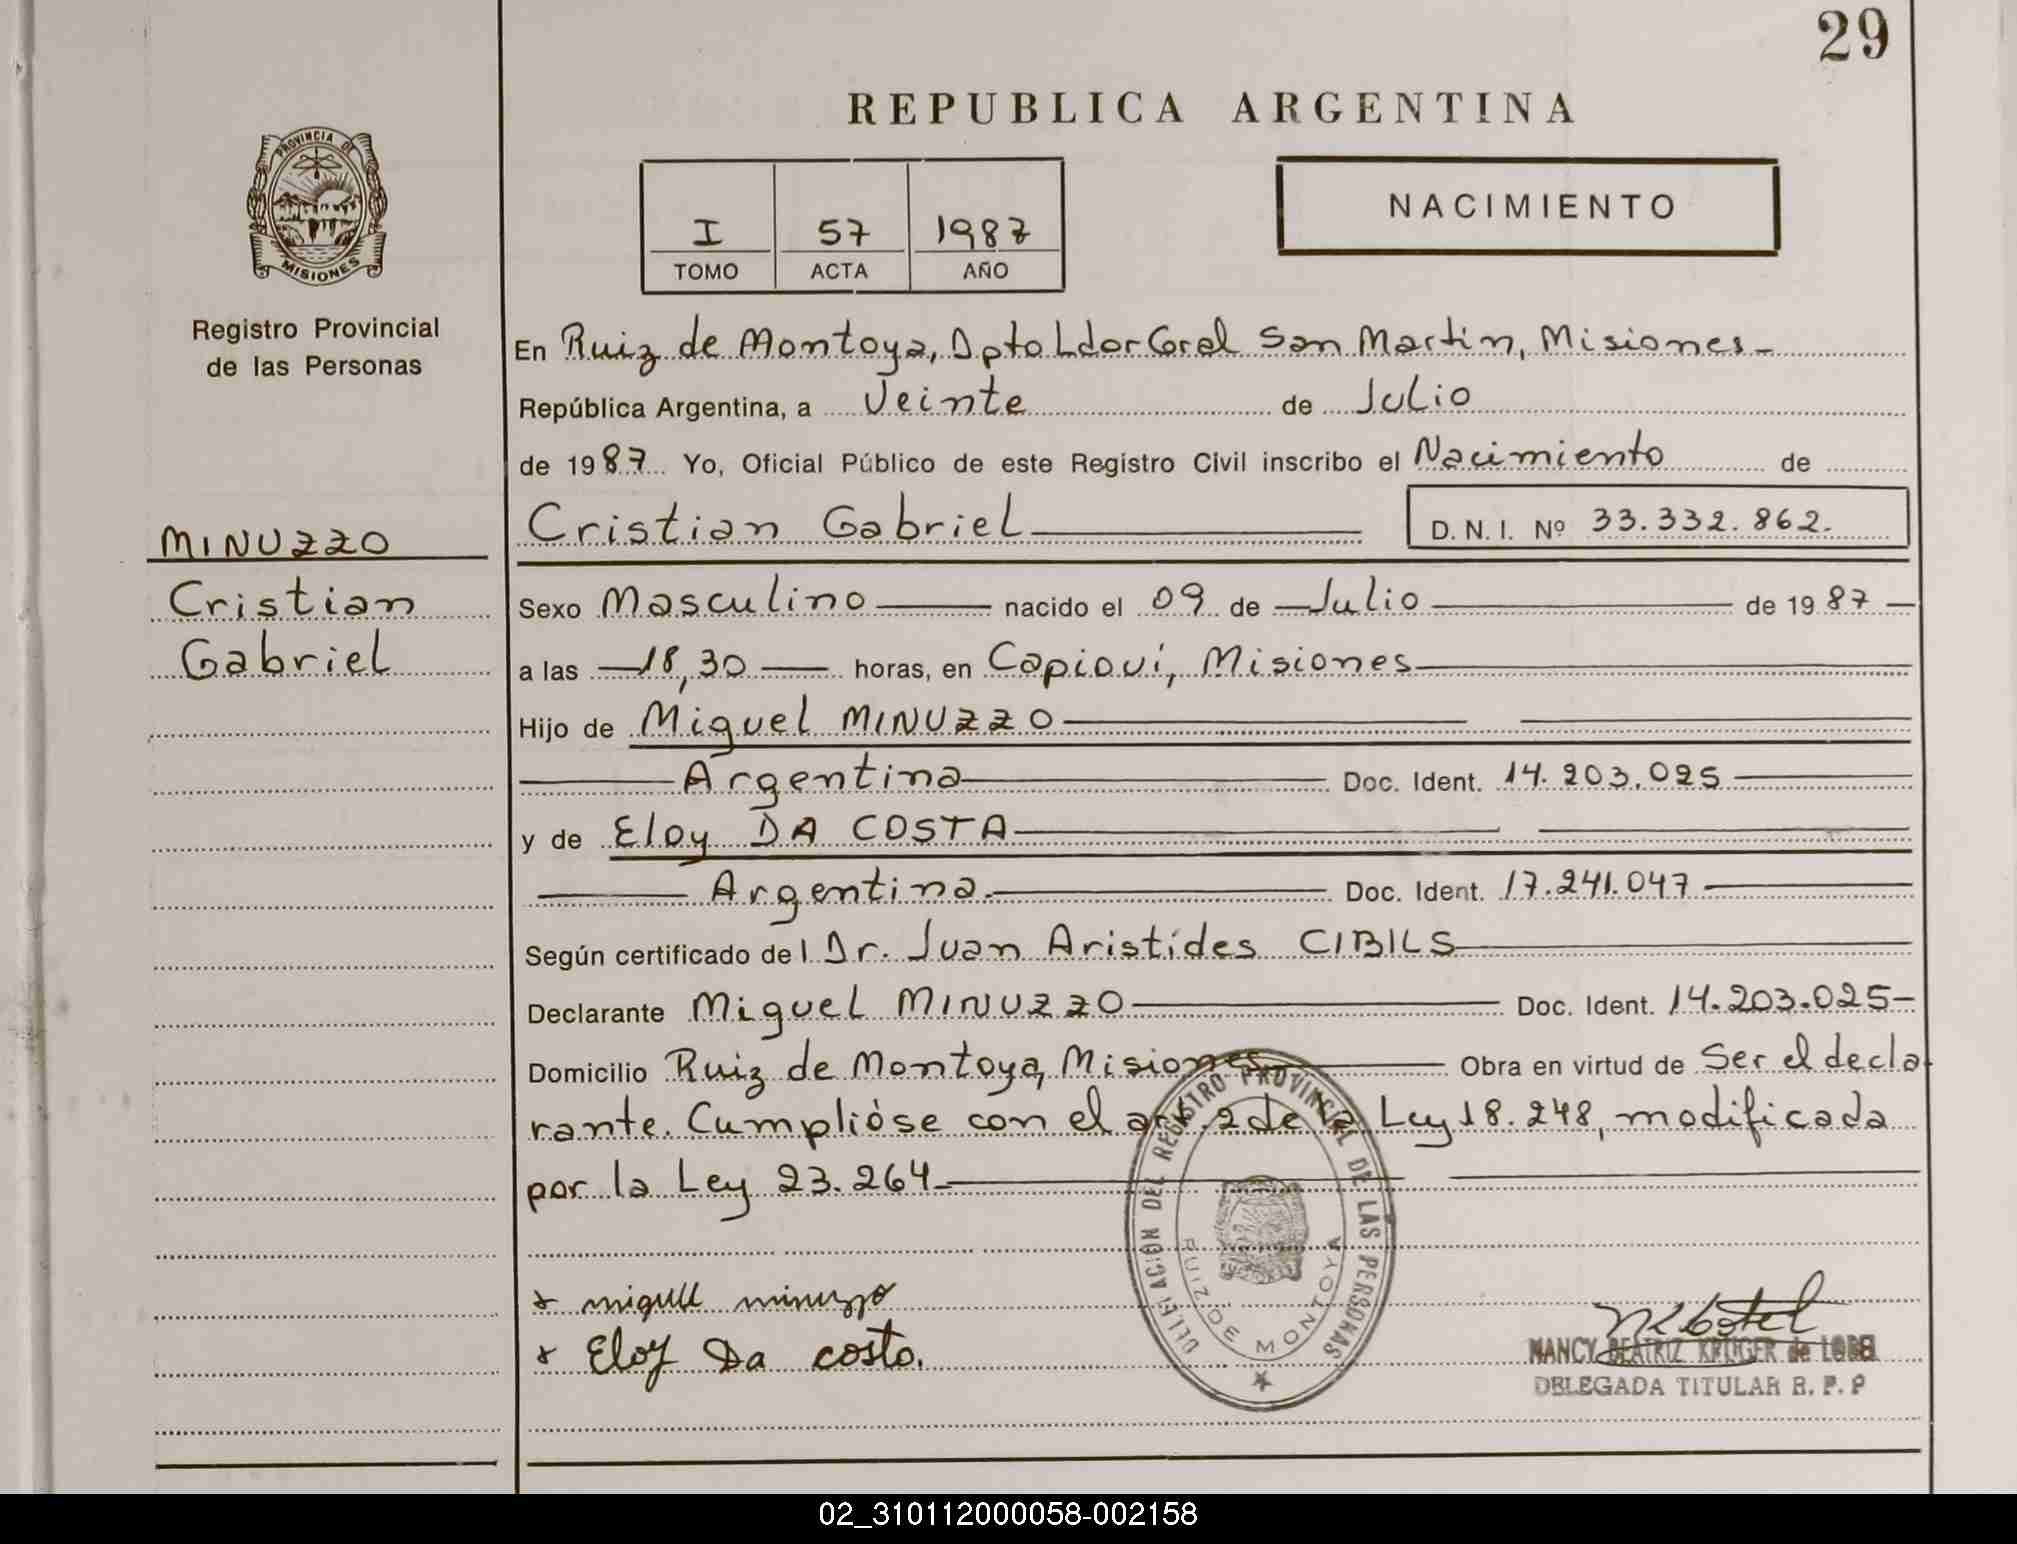 29
REPUBLICA ARGENTINA
PROVINCIA DE
MISIONES
I 57 1987
TOMO ACTA AÑO
NACIMIENTO
Registro Provincial
de las Personas
En Ruiz de Montoya, Dpto Ldor Gral San Martin, Misiones
República Argentina, a Veinte de Julio
de 1987 Yo, Oficial Público de este Registro Civil inscribo el Nacimiento de
Cristian Gabriel D.N.I. Nº 33.332.862.
MINUZZO
Cristian
Gabriel
Sexo Masculino nacido el 09 de Julio de 1987
a las 18,30 horas, en Capioví, Misiones
Hijo de Miguel MINUZZO
Argentina Doc. Ident. 14.203.025
y de Eloy DA COSTA
Argentina Doc. Ident. 17.241.047
Según certificado del Dr. Juan Arístides CIBILS
Declarante Miguel MINUZZO Doc. Ident. 14.203.025
Domicilio Ruiz de Montoya, Misiones Obra en virtud de Ser el decla
rante. Cumplióse con el art. 2 de la Ley 18.248, modificada
por la Ley 23.264
DELEGACION DEL REGISTRO PROVINCIAL DE LAS PERSONAS
RUIZ DE MONTOYA
x miguel minuzzo
x Eloy Da costa.
NANCY BEATRIZ KRUGER de
DELEGADA TITULAR R. P. P
02_310112000058-002158